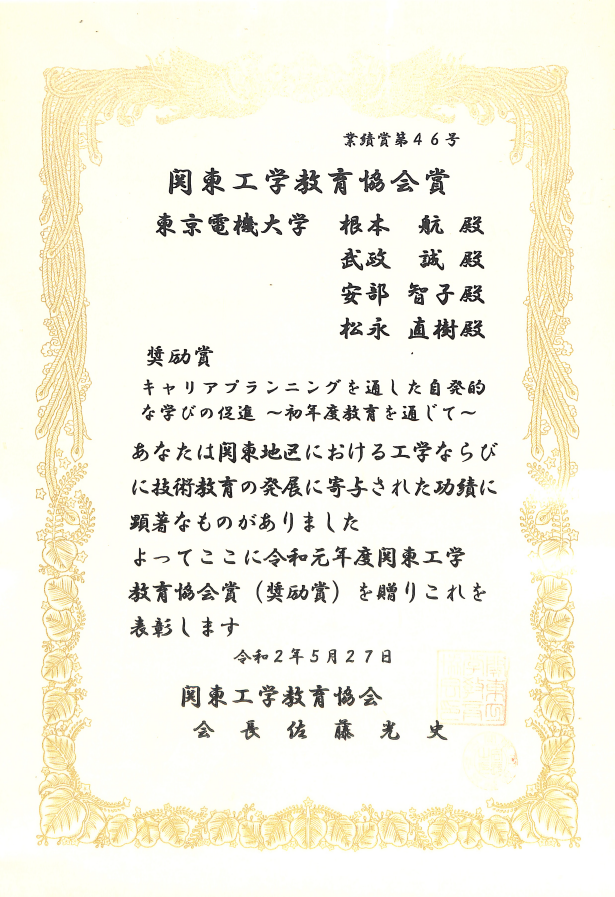 業績賞第46号
関東工学教育協会賞
東京電機大学 根本 航 殿
武政 誠 殿
安部 智子殿
松永 直樹殿
奨励賞
キャリアプランニングを通した自発的
な学びの促進 〜初年度教育を通じて〜
あなたは関東地区における工学ならび
に技術教育の発展に寄与された功績に
顕著なものがありました
よってここに令和元年度関東工学
教育協会賞（奨励賞）を贈りこれを
表彰します
令和2年5月27日
関東工学教育協会
会長 佐藤光史